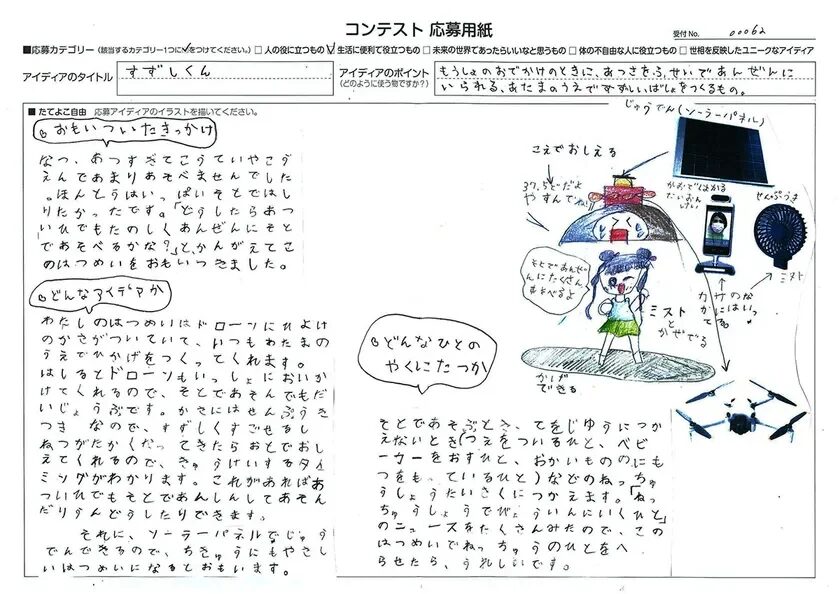 コンテスト 応募用紙
受付No. 00062
■応募カテゴリー(該当するカテゴリー1つに✓をつけてください。) □ 人の役に立つもの ✓ 生活に便利で役立つもの □ 未来の世界であったらいいなと思うもの □ 体の不自由な人に役立つもの □ 世相を反映したユニークなアイディア
アイディアのタイトル
すずしくん
アイディアのポイント
(どのように使う物ですか?)
もうしょのおでかけのときに、あつさをふせいであんぜんに
いられる、あたまのうえですずしいばしょをつくるもの。
■ たてよこ自由 応募アイディアのイラストを描いてください。
おもいついたきっかけ
なつ、あつすぎてこうていやこう
えんであまりあそべませんでした
。ほんとうはいっぱいそとではし
りたかったです。「どうしたらあつ
いひでもたのしくあんぜんにそと
であそべるかな?」と、かんがえてこ
のはつめいをおもいつきました。
どんなアイデアか
わたしのはつめいはドローンにひよけ
のかさがついていて、いつもあたまの
うえでひかげをつくってくれます。
はしるとドローンもいっしょにおいか
けてくれるので、そとであそんでもだ
いじょうぶです。かさにはせんぷうき
つきなので、すずしくすごせるし
ねつがたかくなってきたらおとでおし
えてくれるので、きゅうけいするタイ
ミングがわかります。これがあればあ
ついひでもそとであんしんしてあそん
だりうんどうしたりできます。
それに、ソーラーパネルでじゅう
でんできるので、ちきゅうにもやさし
いはつめいになるとおもいます。
どんなひとの
やくにたつか
そとであそぶとき、てをじゆうにつか
えないとき(つえをついるひと、ベビ
ーカーをおすひと、おかいもののにも
つをもっているひと)などのねっちゅ
うしょうたいさくにつかえます。「ねっ
ちゅうしょうでびょういんにいくひと」
のニュースをたくさんみたので、この
はつめいでねっちゅうのひとをへ
らせたら、うれしいです。
じゅうでん(ソーラーパネル)
こえでおしえる
37.5どだよ
やすんでね!
かおではかる
たいおんけい
せんぷうき
ミスト
そとであんぜ
んにたくさん
あそべるよ
ミスト
と
かぜでる
カサのな
かにはいっ
てる
かげが
できる